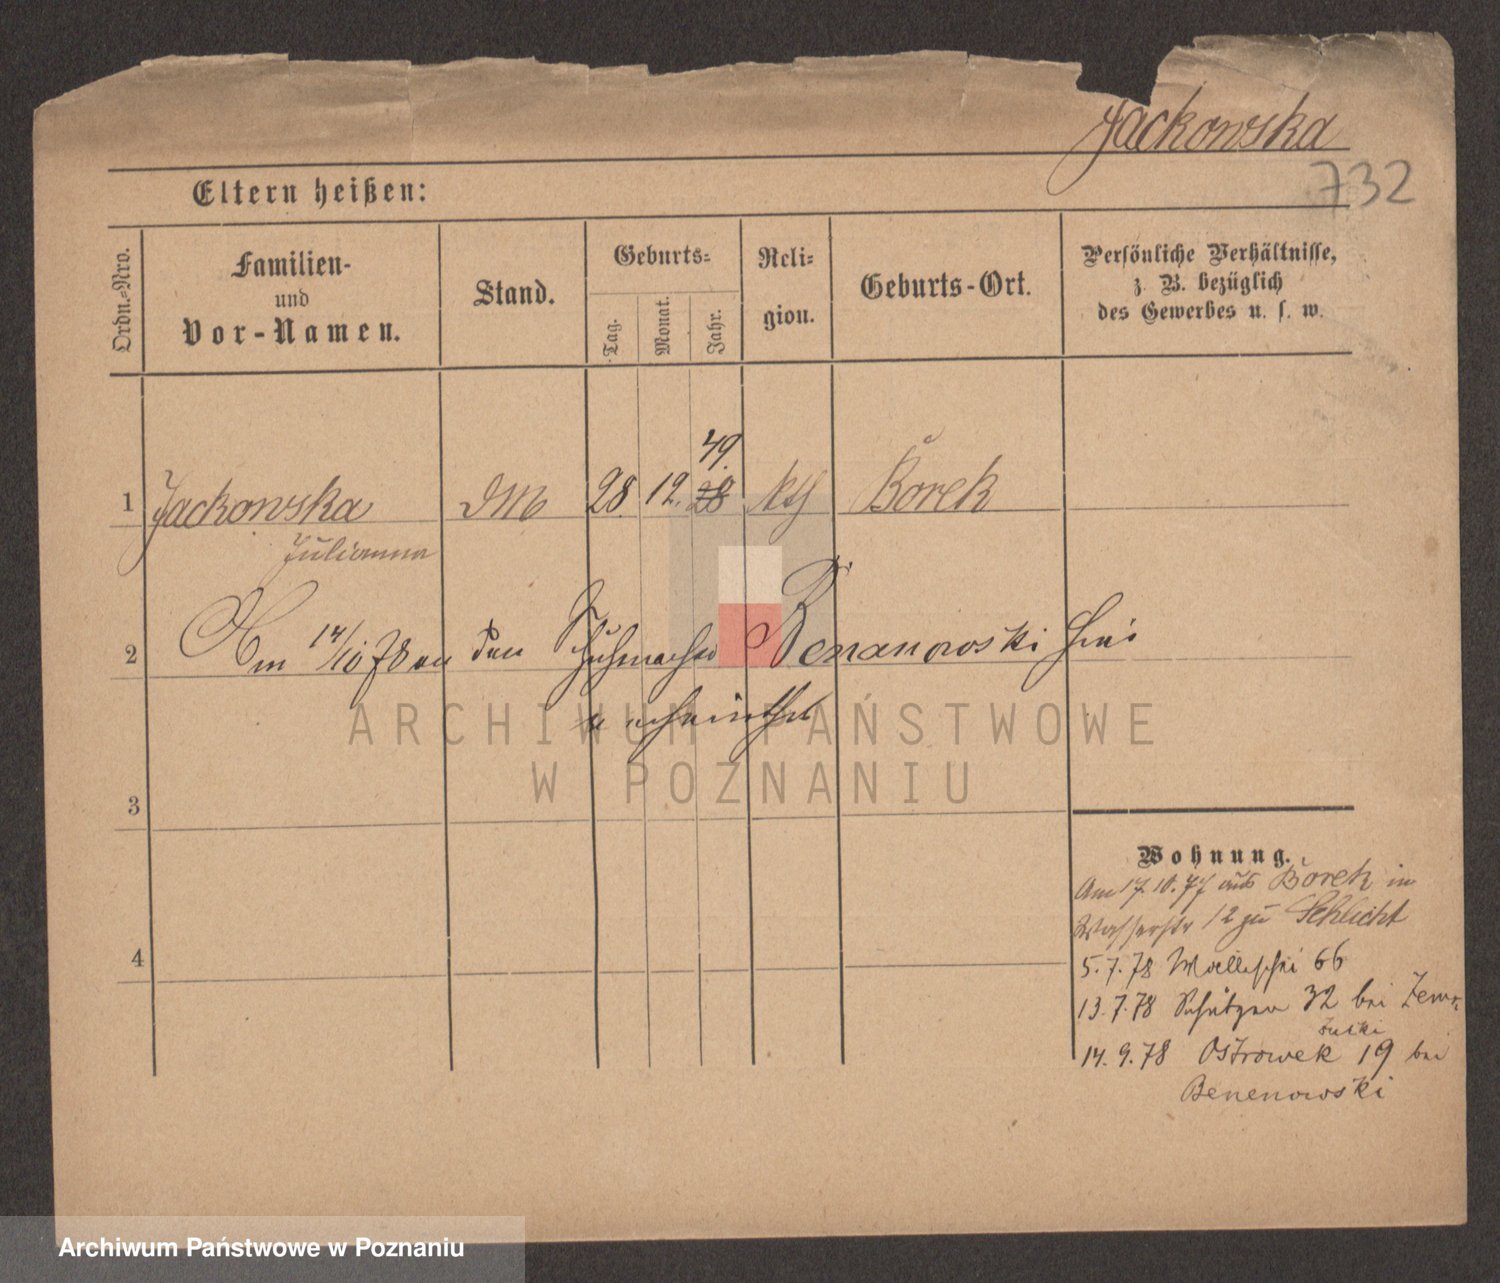 Jackowska
732
Eltern heißen:
Ordn.-Nro.
Familien- und Vor-Namen.
Stand.
Geburts-
Tag.
Monat.
Jahr.
Reli-
gion.
Geburts-Ort.
Persönliche Verhältnisse,
z. B. bezüglich
des Gewerbes u. s. w.
49.
1 Jackowska DM 28. 12. 28 kth Borek
Julianna
2 Am 14/10 78 an den Schuhmacher Benanowski hier
verheirathet
3
Wohnung.
Am 17.10.77 aus Borek in
Wasserstr 12 zu Schlicht
4
5.7.78 Wallischei 66
13.7.78 Schützen 32 bei
14.9.78 Ostrowek 19 bei
Benenowski
ARCHIWUM PAŃSTWOWE
W POZNANIU
Archiwum Państwowe w Poznaniu